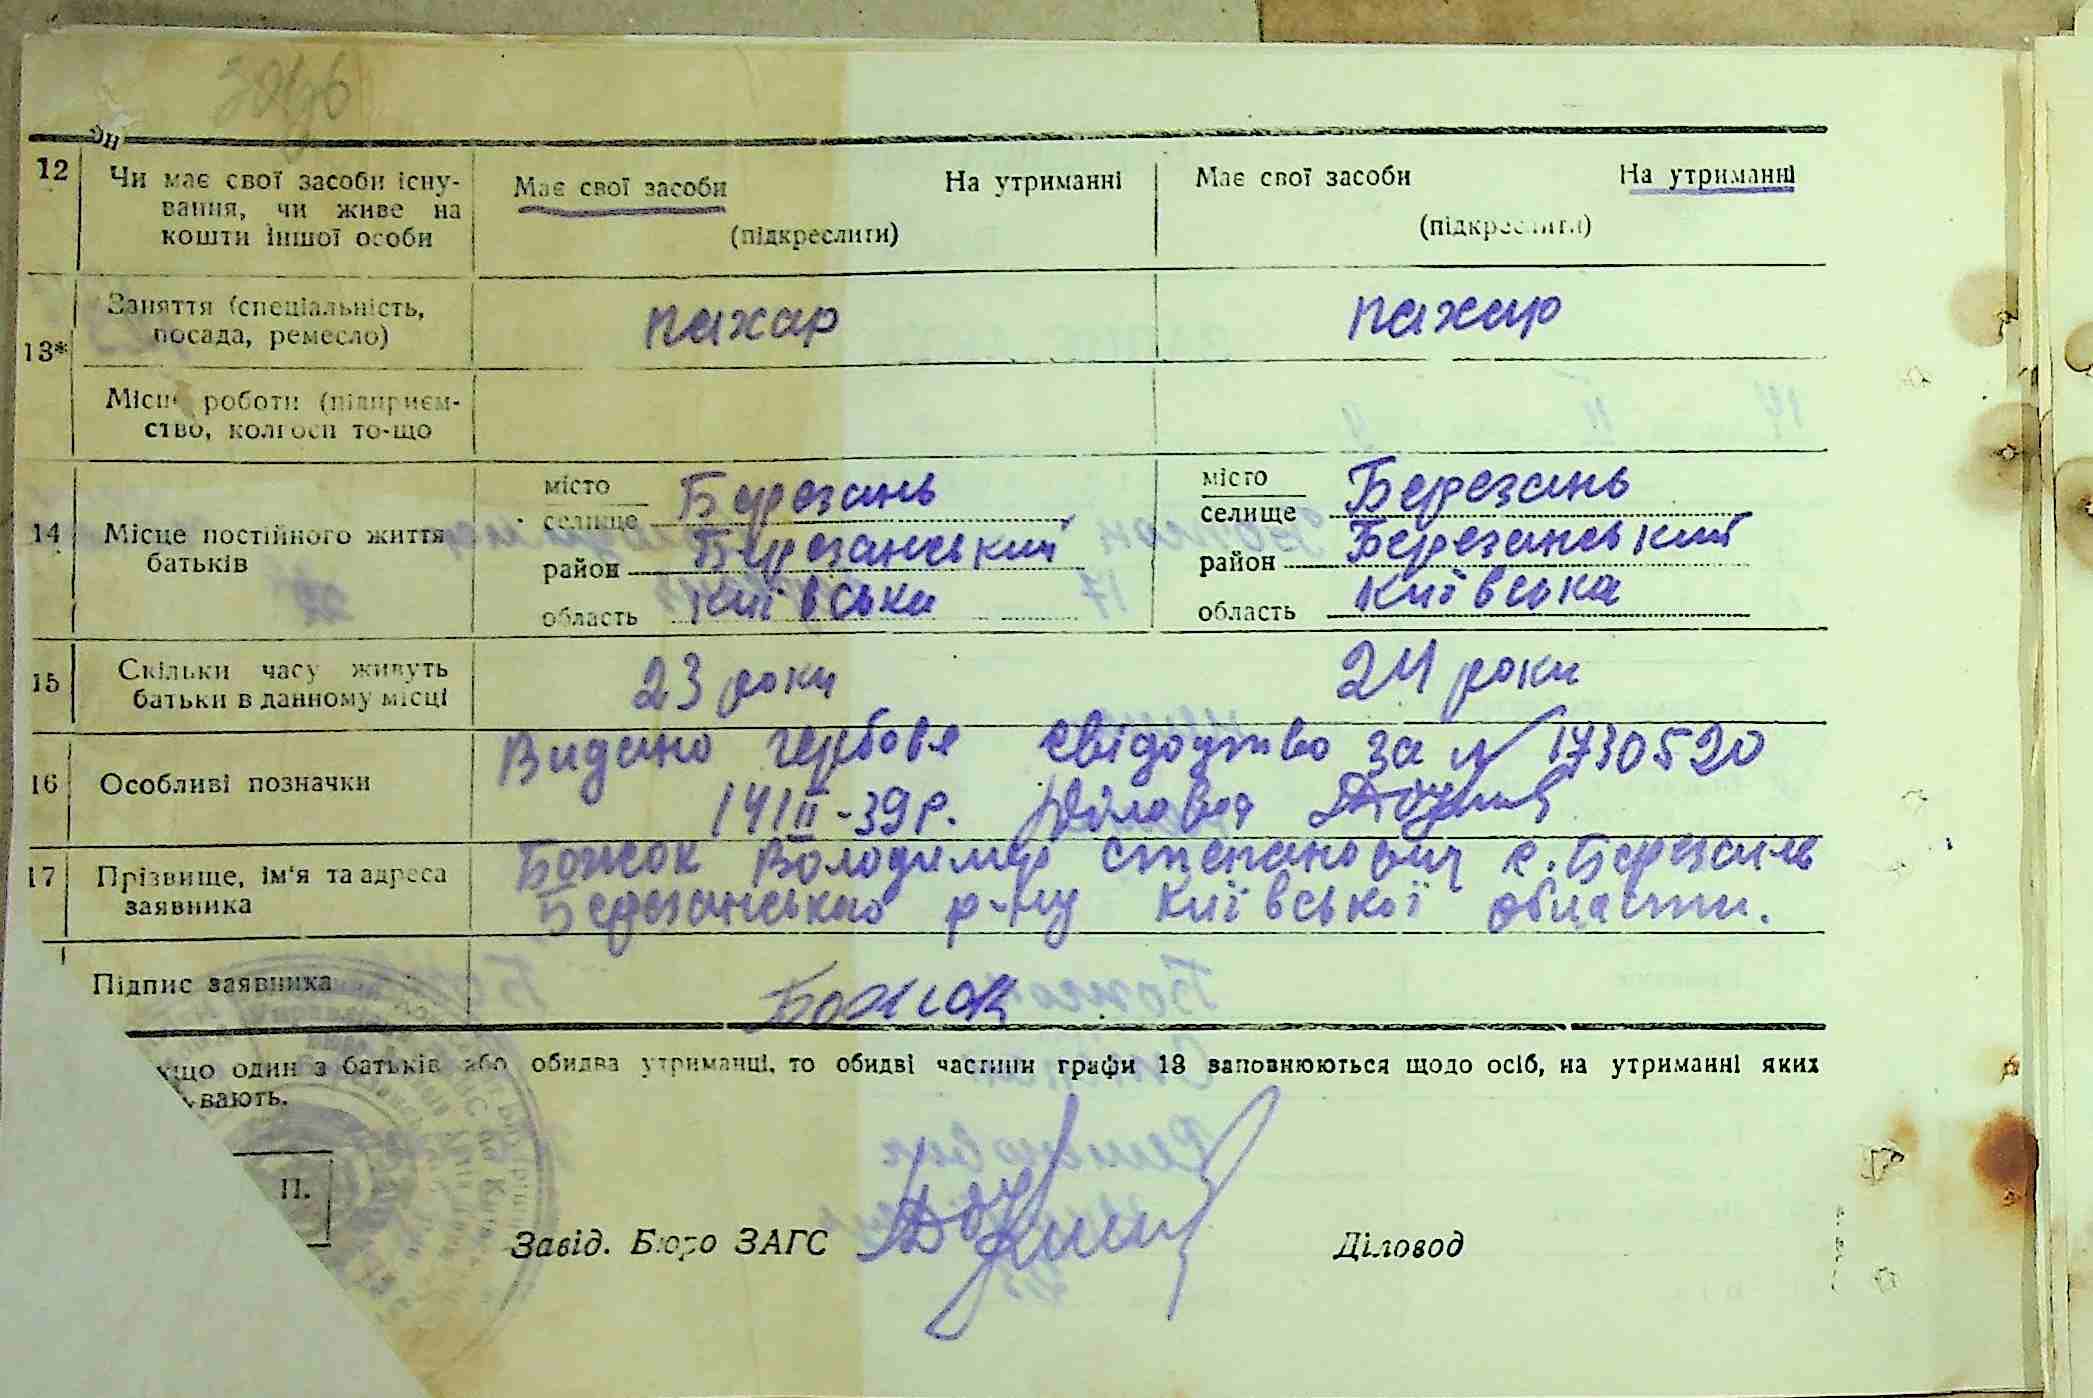 12 Чи має свої засоби існу-
вання, чи живе на
кошти іншої особи
Має свої засоби На утриманні
(підкреслити)
Має свої засоби На утриманні
(підкреслити)
13*
Заняття (спеціальність,
посада, ремесло)
пахар
пахар
Місце роботи (підприєм-
ство, колгосп то-що
14 Місце постійного життя
батьків
місто
селище Березань
район Березанський
область Київська
місто
селище Березань
район Березанський
область Київська
15 Скільки часу живуть
батьки в данному місці
23 роки
24 роки
16 Особливі позначки
Видано гербове свідоцтво за № 1730520
14/II-39р. Діловод
17 Прізвище, ім'я та адреса
заявника
Божок Володимир Степанович с. Березань
Березанського р-ну Київської области.
Підпис заявника
Божок
що один з батьків або обидва утриманці, то обидві частини графи 13 заповнюються щодо осіб, на утриманні яких
вають.
П.
Завід. Бюро ЗАГС
Діловод